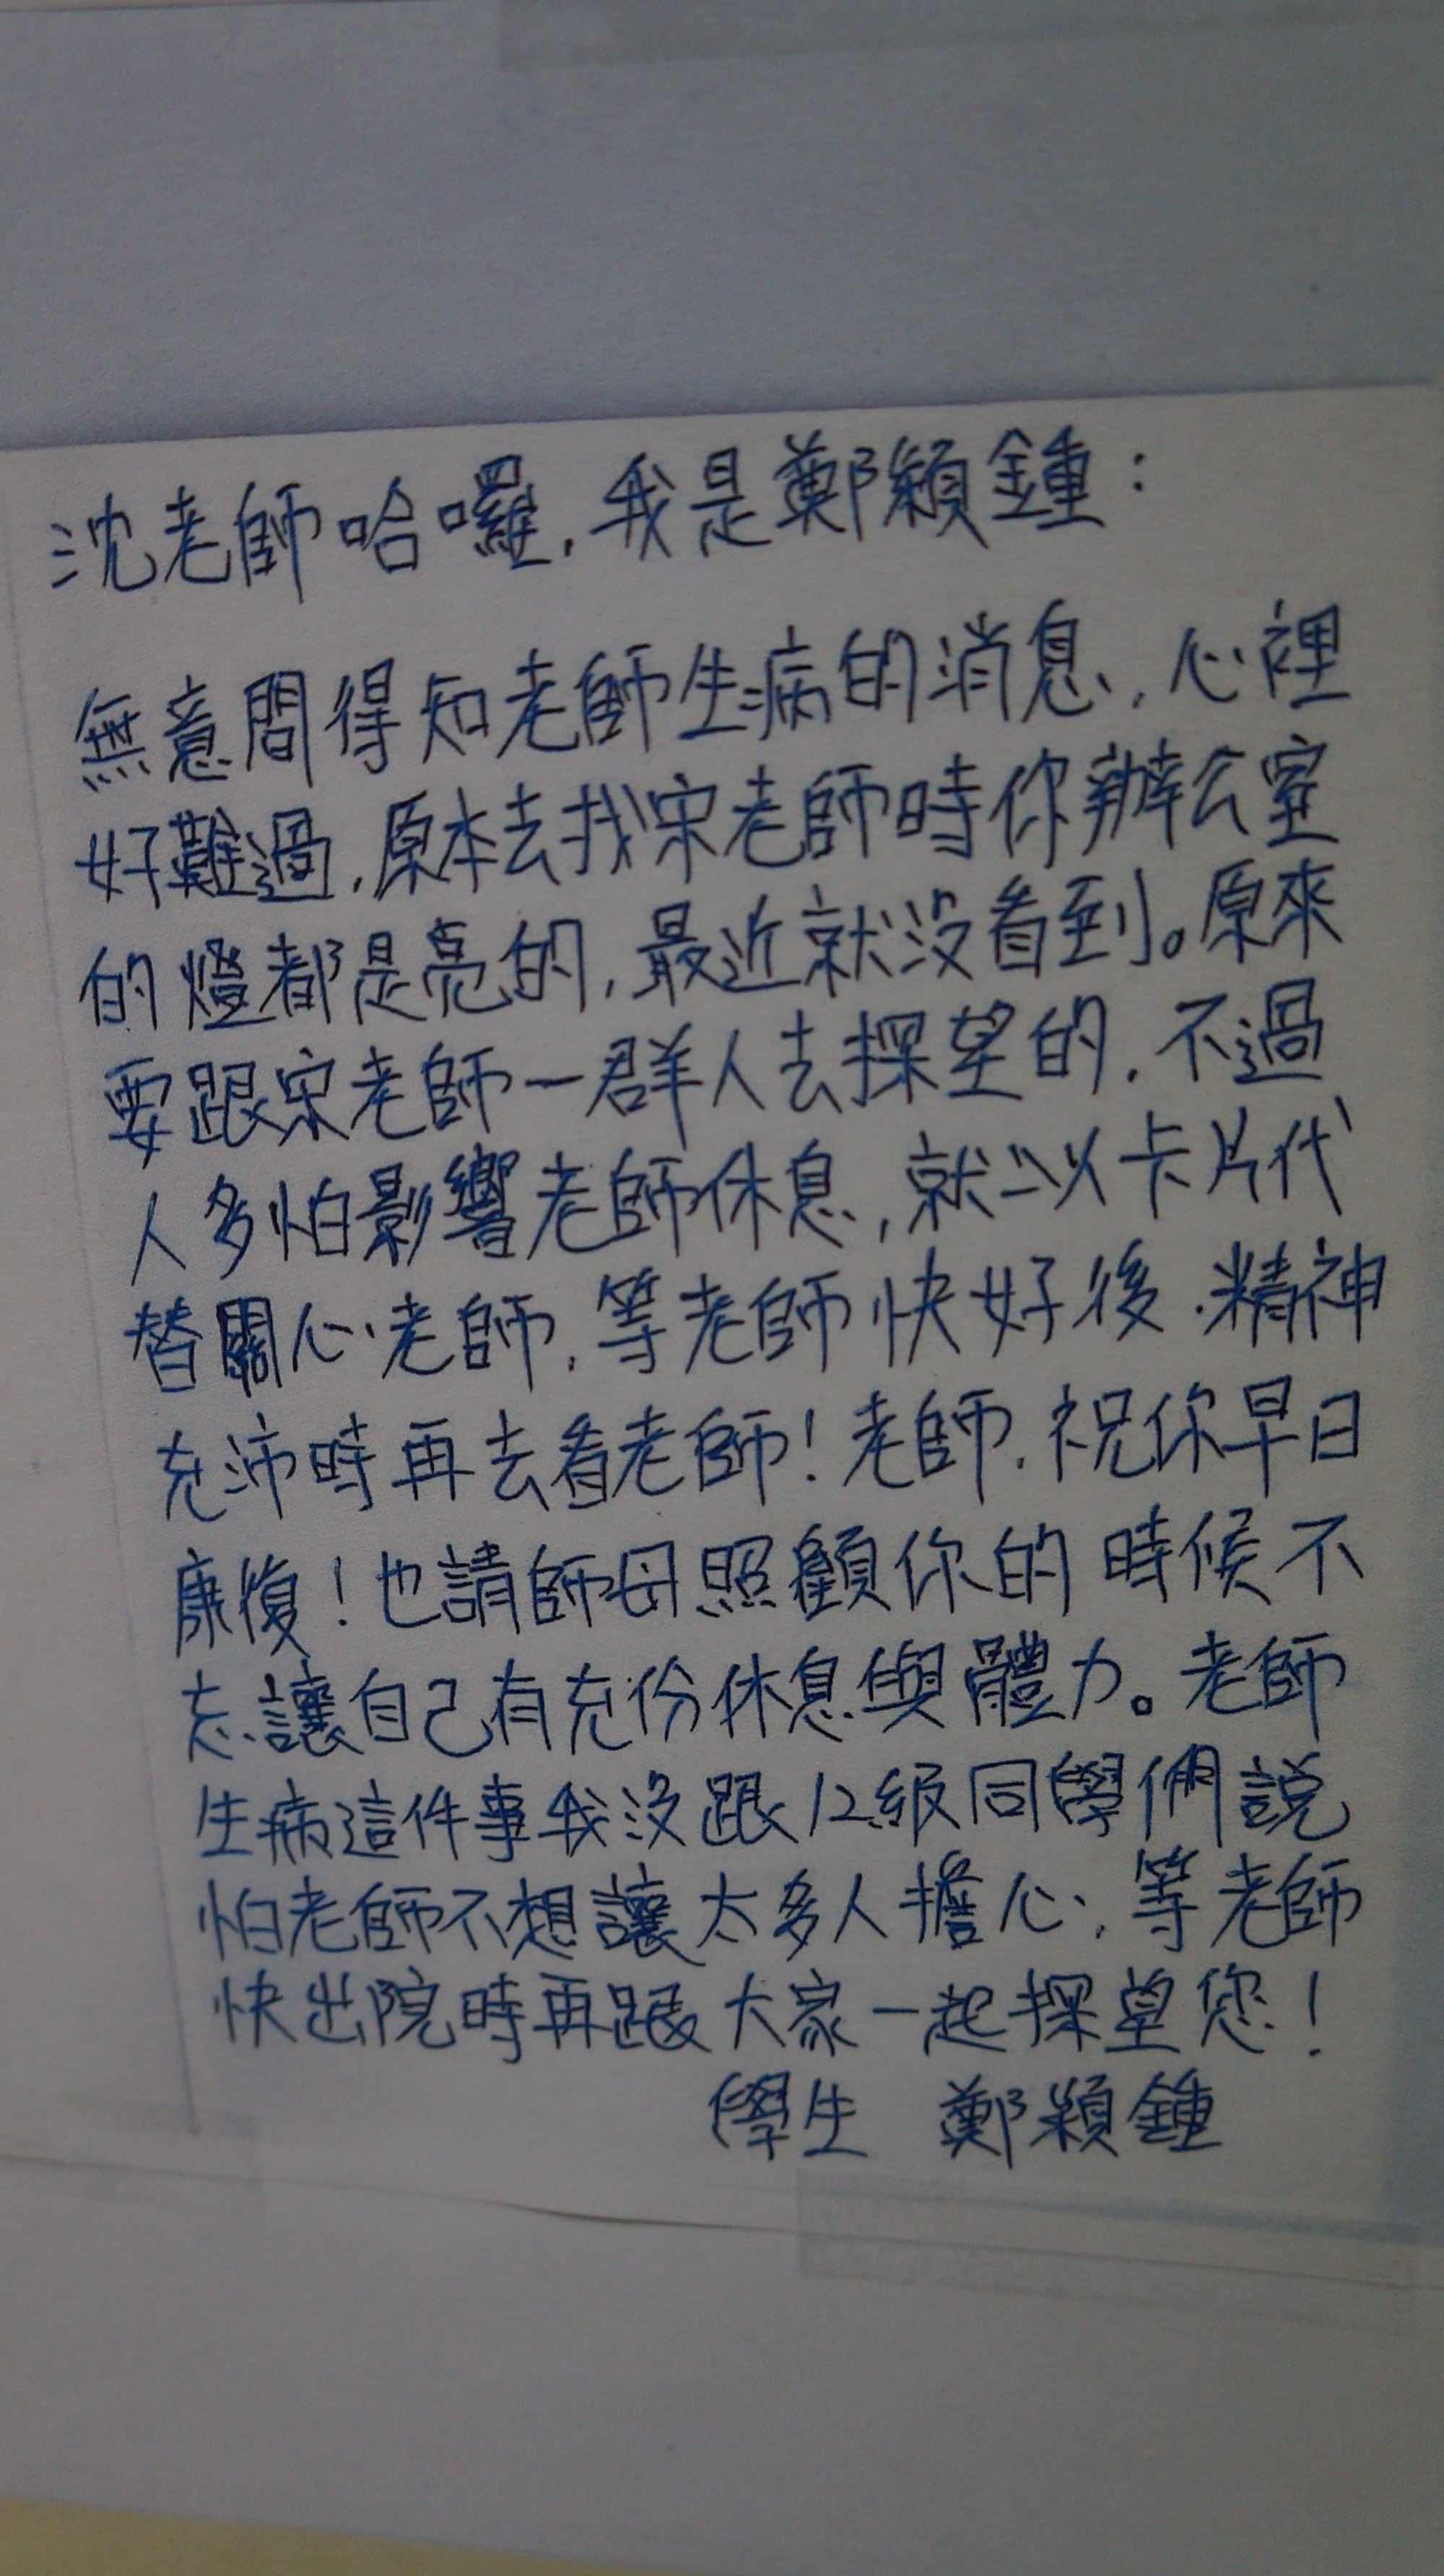 沈老師哈囉,我是鄭穎鍾:
無意間得知老師生病的消息,心裡
好難過,原本去找宋老師時你辦公室
的燈都是亮的,最近就沒看到。原來
要跟宋老師一群人去探望的,不過
人多怕影響老師休息,就以卡片代
替關心老師,等老師快好後,精神
充沛時再去看老師!老師,祝你早日
康復!也請師母照顧你的時候不
忘讓自己有充份休息與體力。老師
生病這件事我沒跟12級同學們說
怕老師不想讓太多人擔心,等老師
快出院時再跟大家一起探望您!
學生 鄭穎鍾